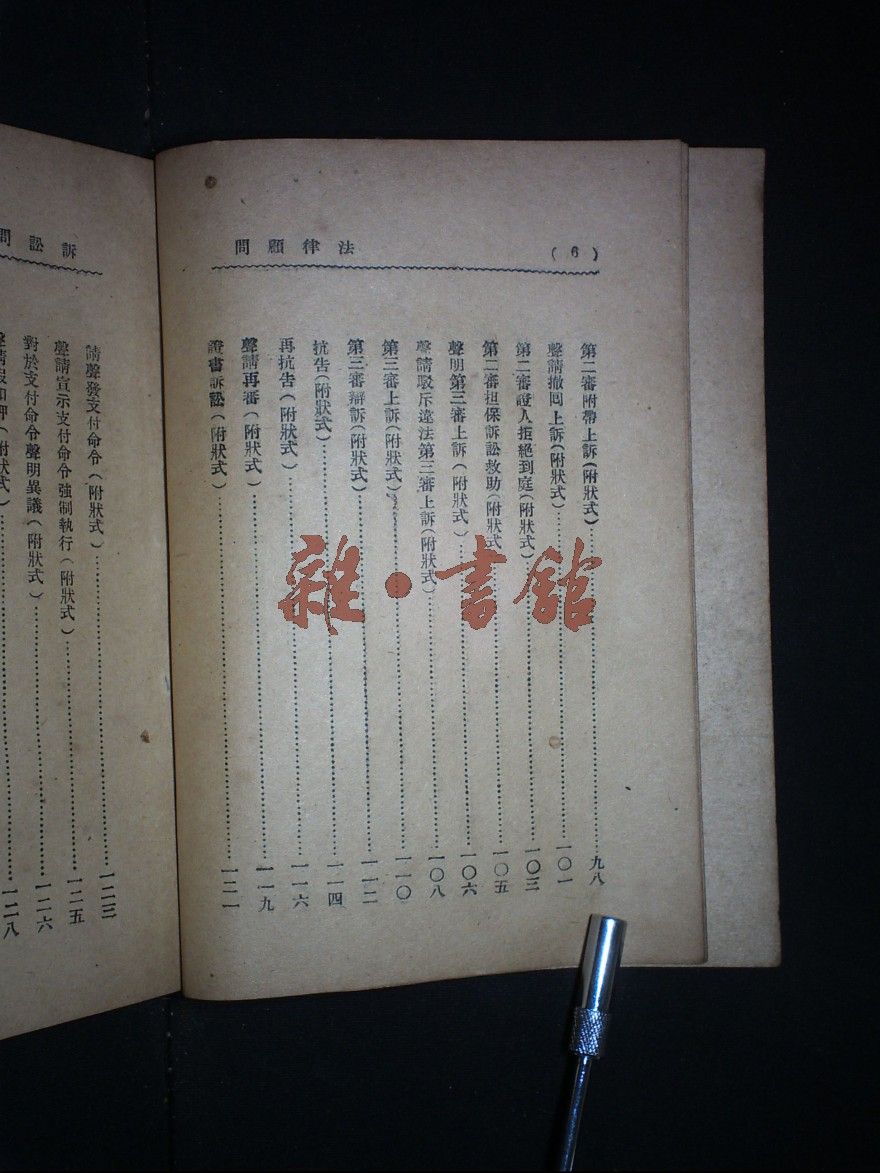 法律顧問
(6)
第二審附帶上訴(附狀式)…………九八
聲請撤回上訴(附狀式)…………一〇一
第二審證人拒絕到庭(附狀式)…………一〇三
第二審担保訴訟救助(附狀式)…………一〇五
聲明第三審上訴(附狀式)…………一〇六
聲請駁斥違法第三審上訴(附狀式)…………一〇八
第三審上訴(附狀式)…………一一〇
第三審辯訴(附狀式)…………一一二
抗告(附狀式)…………一一四
再抗告(附狀式)…………一一六
聲請再審(附狀式)…………一一九
證書訴訟(附狀式)…………一二一
訴訟問
請聲發支付命令(附狀式)…………一二三
聲請宣示支付命令強制執行(附狀式)…………一二五
對於支付命令聲明異議(附狀式)…………一二六
聲請假扣押(附狀式)…………一二八
雜·書館